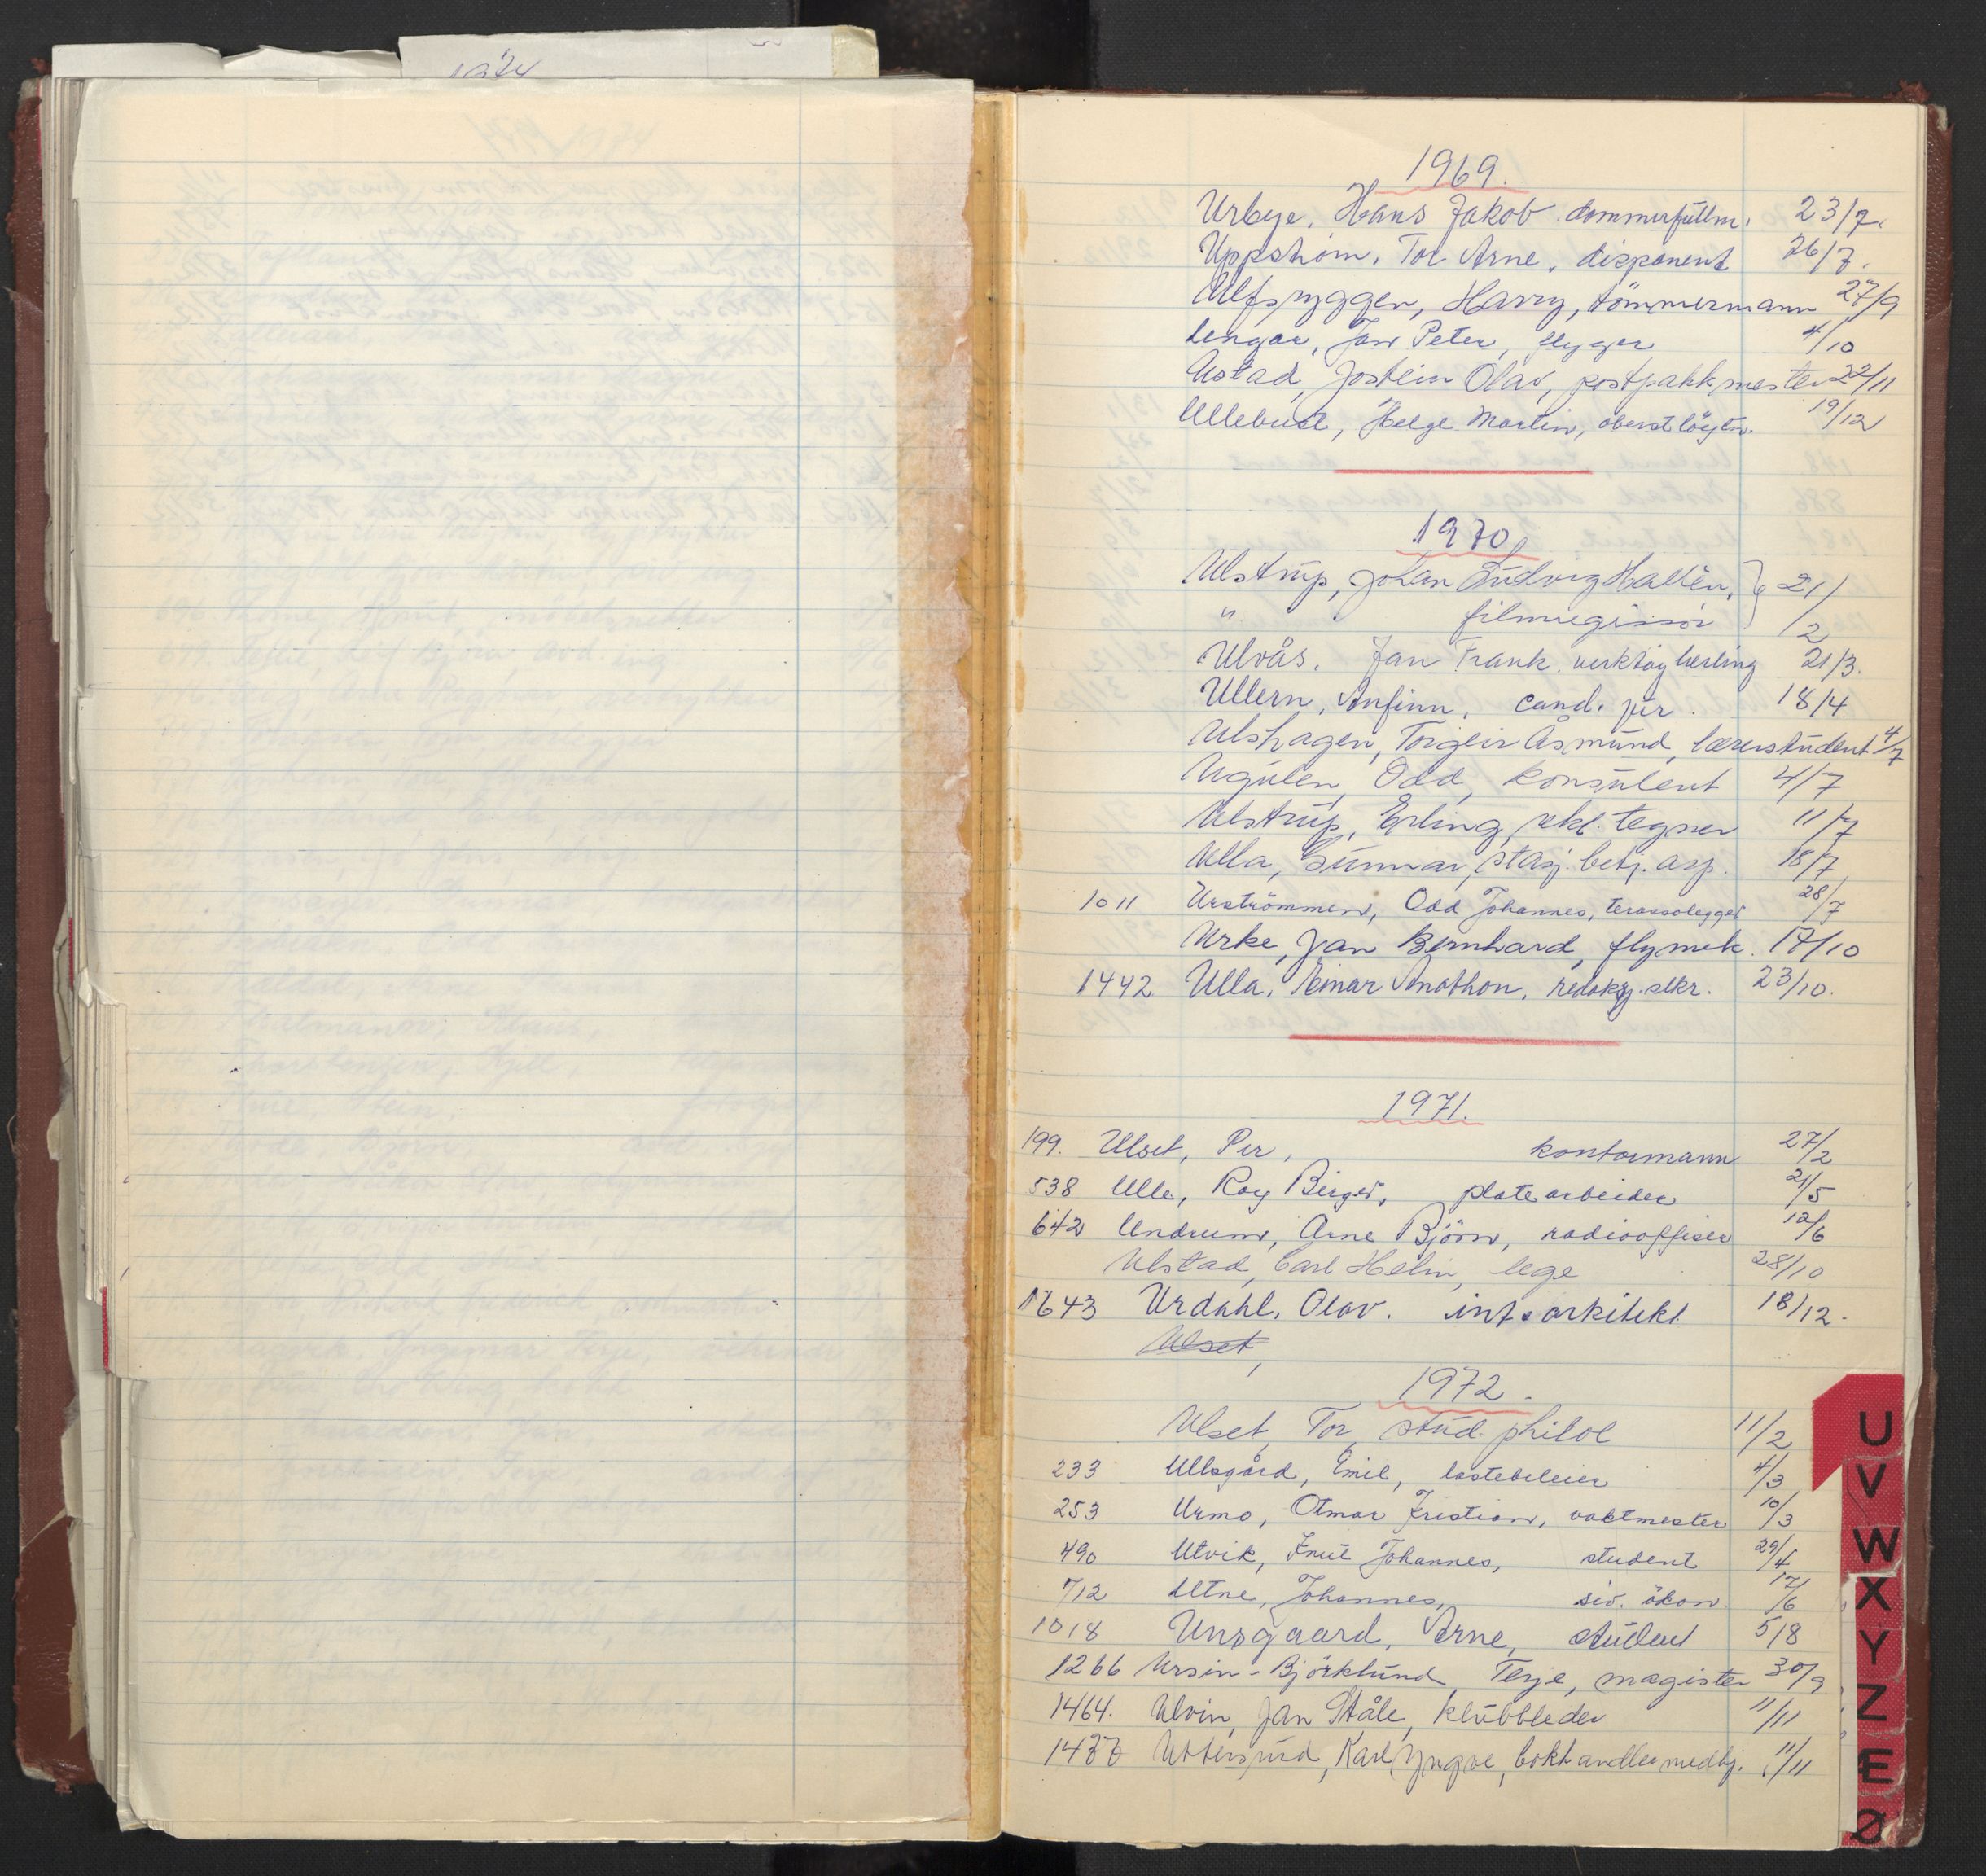 1969.
Urbye, Hans Jakob. dommerfullm. 23/7.
Uppstrøm, Tor Arne, disponent 26/7.
Ulfsryggen, Harry, tömmermann 27/9
Ungar, Jan Peter, flyger 4/10
Ustad, Jostein Olav, postpakkmester 22/11
Ullebust, Helge Martin, oberstlöytn. 19/12
1970
Ulstrup, Johan Ludvig Hallèn, } 21/2
" filmregissör
Ulvås, Jan Frank. verktøyherding 21/3.
Ullern, Anfinn, cand. jur. 18/4
Ulshagen, Torgeir Åsmund, lærerstudent 4/7
Ugulen, Odd, konsulent 4/7
Ulstrup, Erling, rekl. tegner 11/7
Ulla, Gunnar, stasj. betj. asp. 18/7
1011 Urströmmen, Odd Johannes, terassolegger 28/7
Urke, Jan Bernhard, flymek. 17/10
1442 Ulla, Einar Anathon, redaksj. sekr. 23/10.
1971.
199. Ulset, Per, kontormann 27/2
538 Ulle, Roy Birger, platearbeider 21/5
642 Undrum, Arne Björn, radiooffiser 12/6
Ulstad, Carl Helm, lege 28/10
1643 Urdahl, Olav. int. arkitekt 18/12.
Ulset,
1972.
Ulset, Tor, stud. philol 11/2
233 Ullsgård, Emil, lastebileier 4/3
253 Urmo, Otmar Kristian, vaktmester 10/3
490 Utvik, Knut Johannes, student 29/4
712 Utne, Johannes, siv. ökon. 17/6
1018 Unsgaard, Arne, student 5/8
1266 Ursin-Björklund, Terje, magister 30/9
1464. Ulvin, Jan Ståle, klubbleder 11/11
1477 Uttersrud, Karl Yngve, bokhandlermedhj. 11/11
U
V
W
X
Y
Z
Æ
Ø